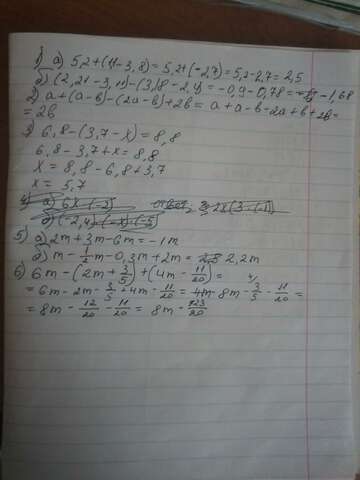 1) а) 5,2+(1,1-3,8)=5,2+(-2,7)=5,2-2,7=2,5
б) (2,21-3,11)-(3,18-2,4)=-0,9-0,78=-1,68
2) a+(a-b)-(2a-b)+2b=a+a-b-2a+b+2b=
=2b
3) 6,8-(3,7-x)=8,8
6,8-3,7+x=8,8
x=8,8-6,8+3,7
x=5,7
4) а) 6x·(-2)
б) (-2,4)·(-x)·(-5)
5) а) 2m+3m-6m=-1m
б) m-\frac{1}{2}m-0,3m+2m=2,2m
6) 6m-(2m+\frac{3}{5})+(4m-\frac{11}{20})=
=6m-2m-\frac{3}{5}+4m-\frac{11}{20}=8m-\frac{3}{5}-\frac{11}{20}=
=8m-\frac{12}{20}-\frac{11}{20}=8m-\frac{23}{20}